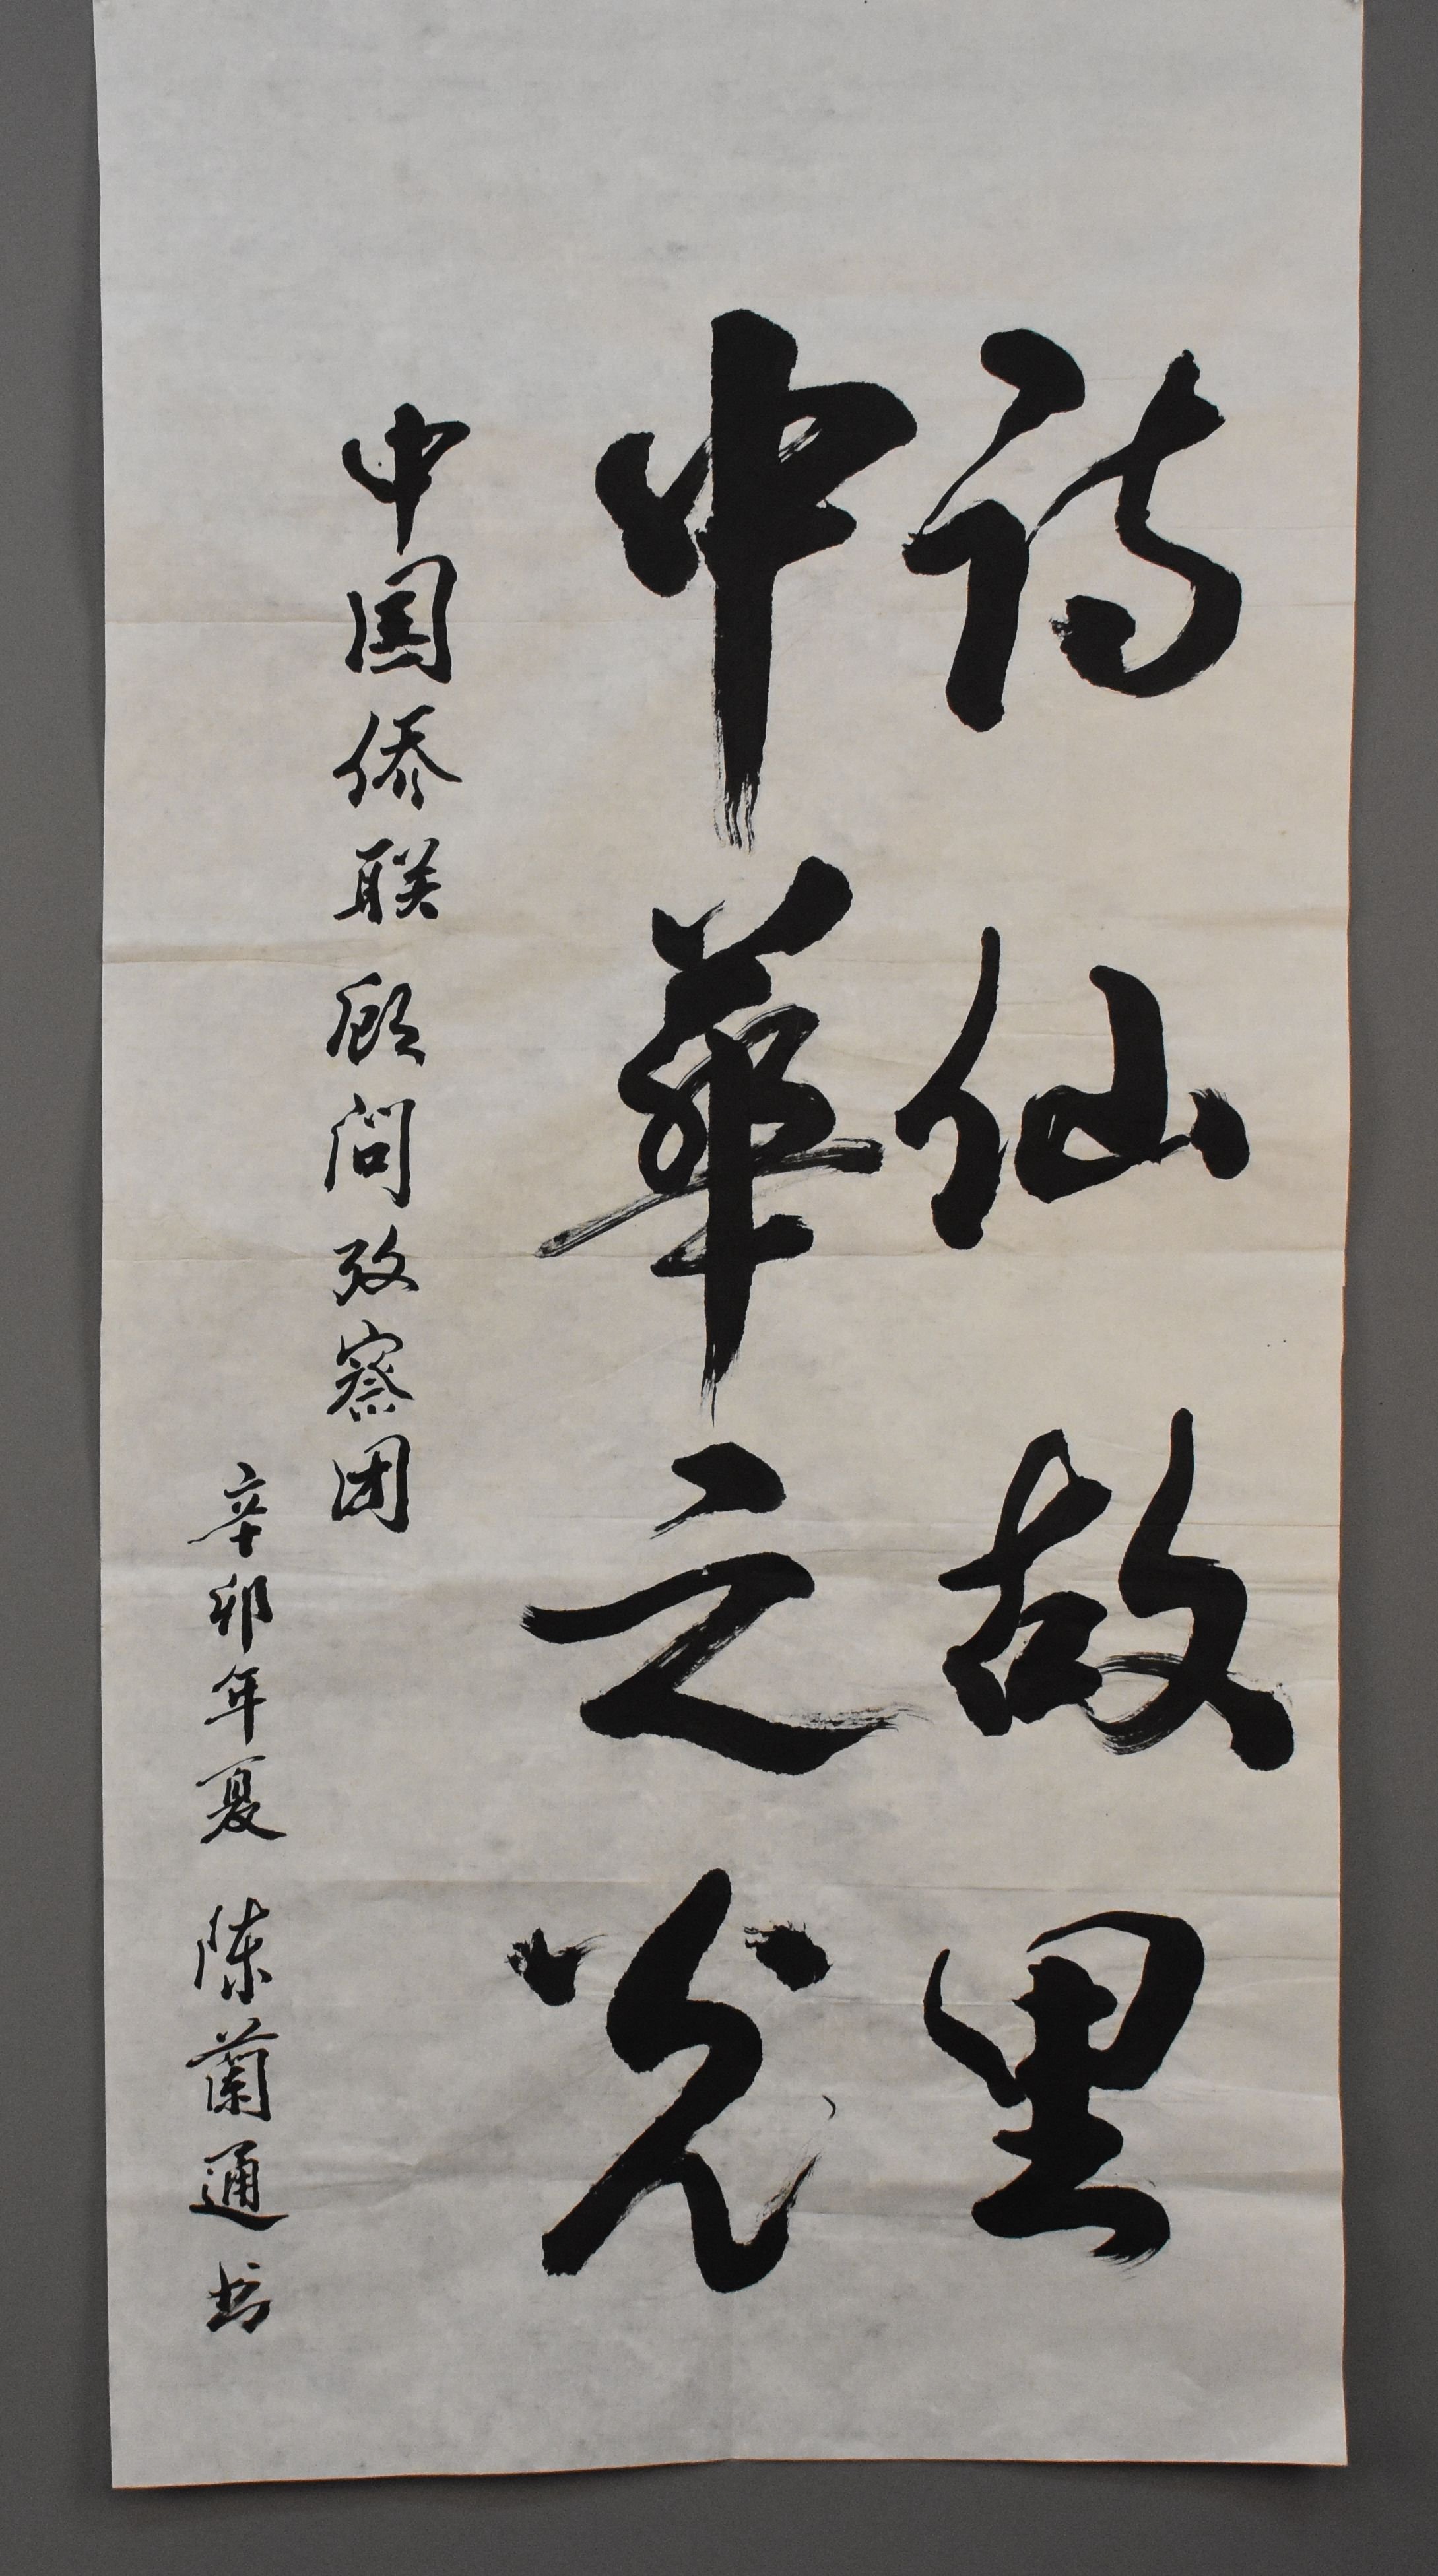 诗仙故里
中華之光
中国侨联顾问考察团
辛卯年夏 陈蘭通书